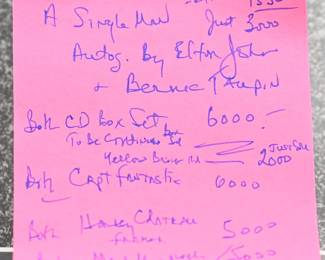 1550
A Single Man Just 3000
Autog. By Elton John
+ Bernie Taupin
Both CD Box Set 6000.-
To Be Continued Box
Yellow Brick Rd Just Sold 2000
Both Capt Fantastic 6000
Both Honkey Chateau 5000
Framed
Both 15000